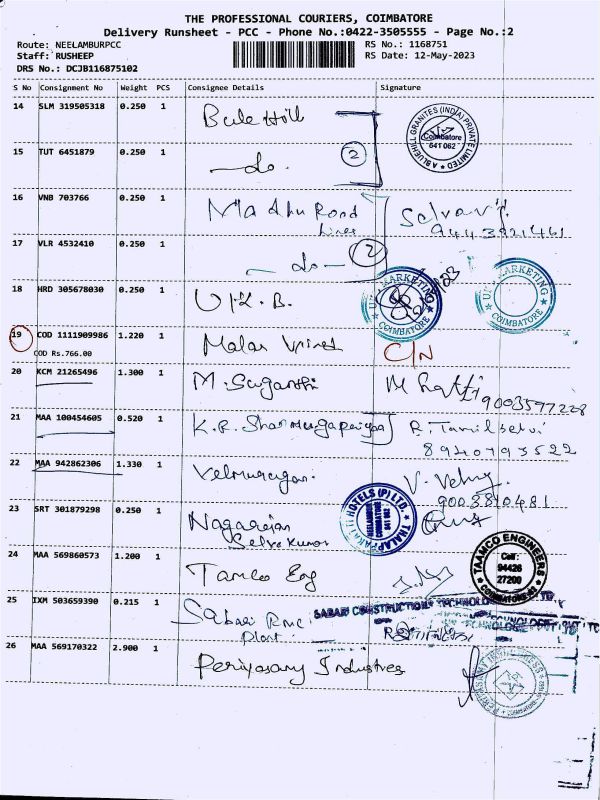 THE PROFESSIONAL COURIERS, COIMBATORE
Delivery Runsheet - PCC - Phone No.:0422-3505555 - Page No.:2
Route: NEELAMBURPCC
RS No.: 1168751
Staff: RUSHEEP
RS Date: 12-May-2023
DRS No.: DCJB116875102
S No Consignment No Weight PCS Consignee Details Signature
14 SLM 319505318 0.250 1 Blue Hill
A BLUEHILL GRANITES (INDIA) PRIVATE LIMITED
Coimbatore
641 062
15 TUT 6451879 0.250 1 do. 2
16 VNB 703766 0.250 1 Madhu Road
Lines
9443821461
17 VLR 4532410 0.250 1 do 2
18 HRD 305678030 0.250 1 U.K.B.
MARKETING
COIMBATORE
MARKETING
COIMBATORE
19 COD 1111909986 1.220 1 Malar C/N
COD Rs.766.00
20 KCM 21265496 1.300 1 M. Suganthi
9003597228
21 MAA 100454605 0.520 1 K.R. Shanmugapriyaa R. Tamilselvi
8940793522
22 MAA 942862306 1.330 1 Velmurugan. V. Velmu
9003840481
23 SRT 301879298 0.250 1 Nagarajan
Selva Kumar
HOTELS (P) LTD.
NEELAMBUR
COIMBATORE
641 062
24 MAA 569860573 1.200 1 Tamco Eng
TAAMCO ENGINEERS
Cell:
94426
27200
25 IXM 503659390 0.215 1 Sabari RMC
Plant
SABARI CONSTRUCTION TECHNOLOGIES
26 MAA 569170322 2.900 1 Periyasamy Industries